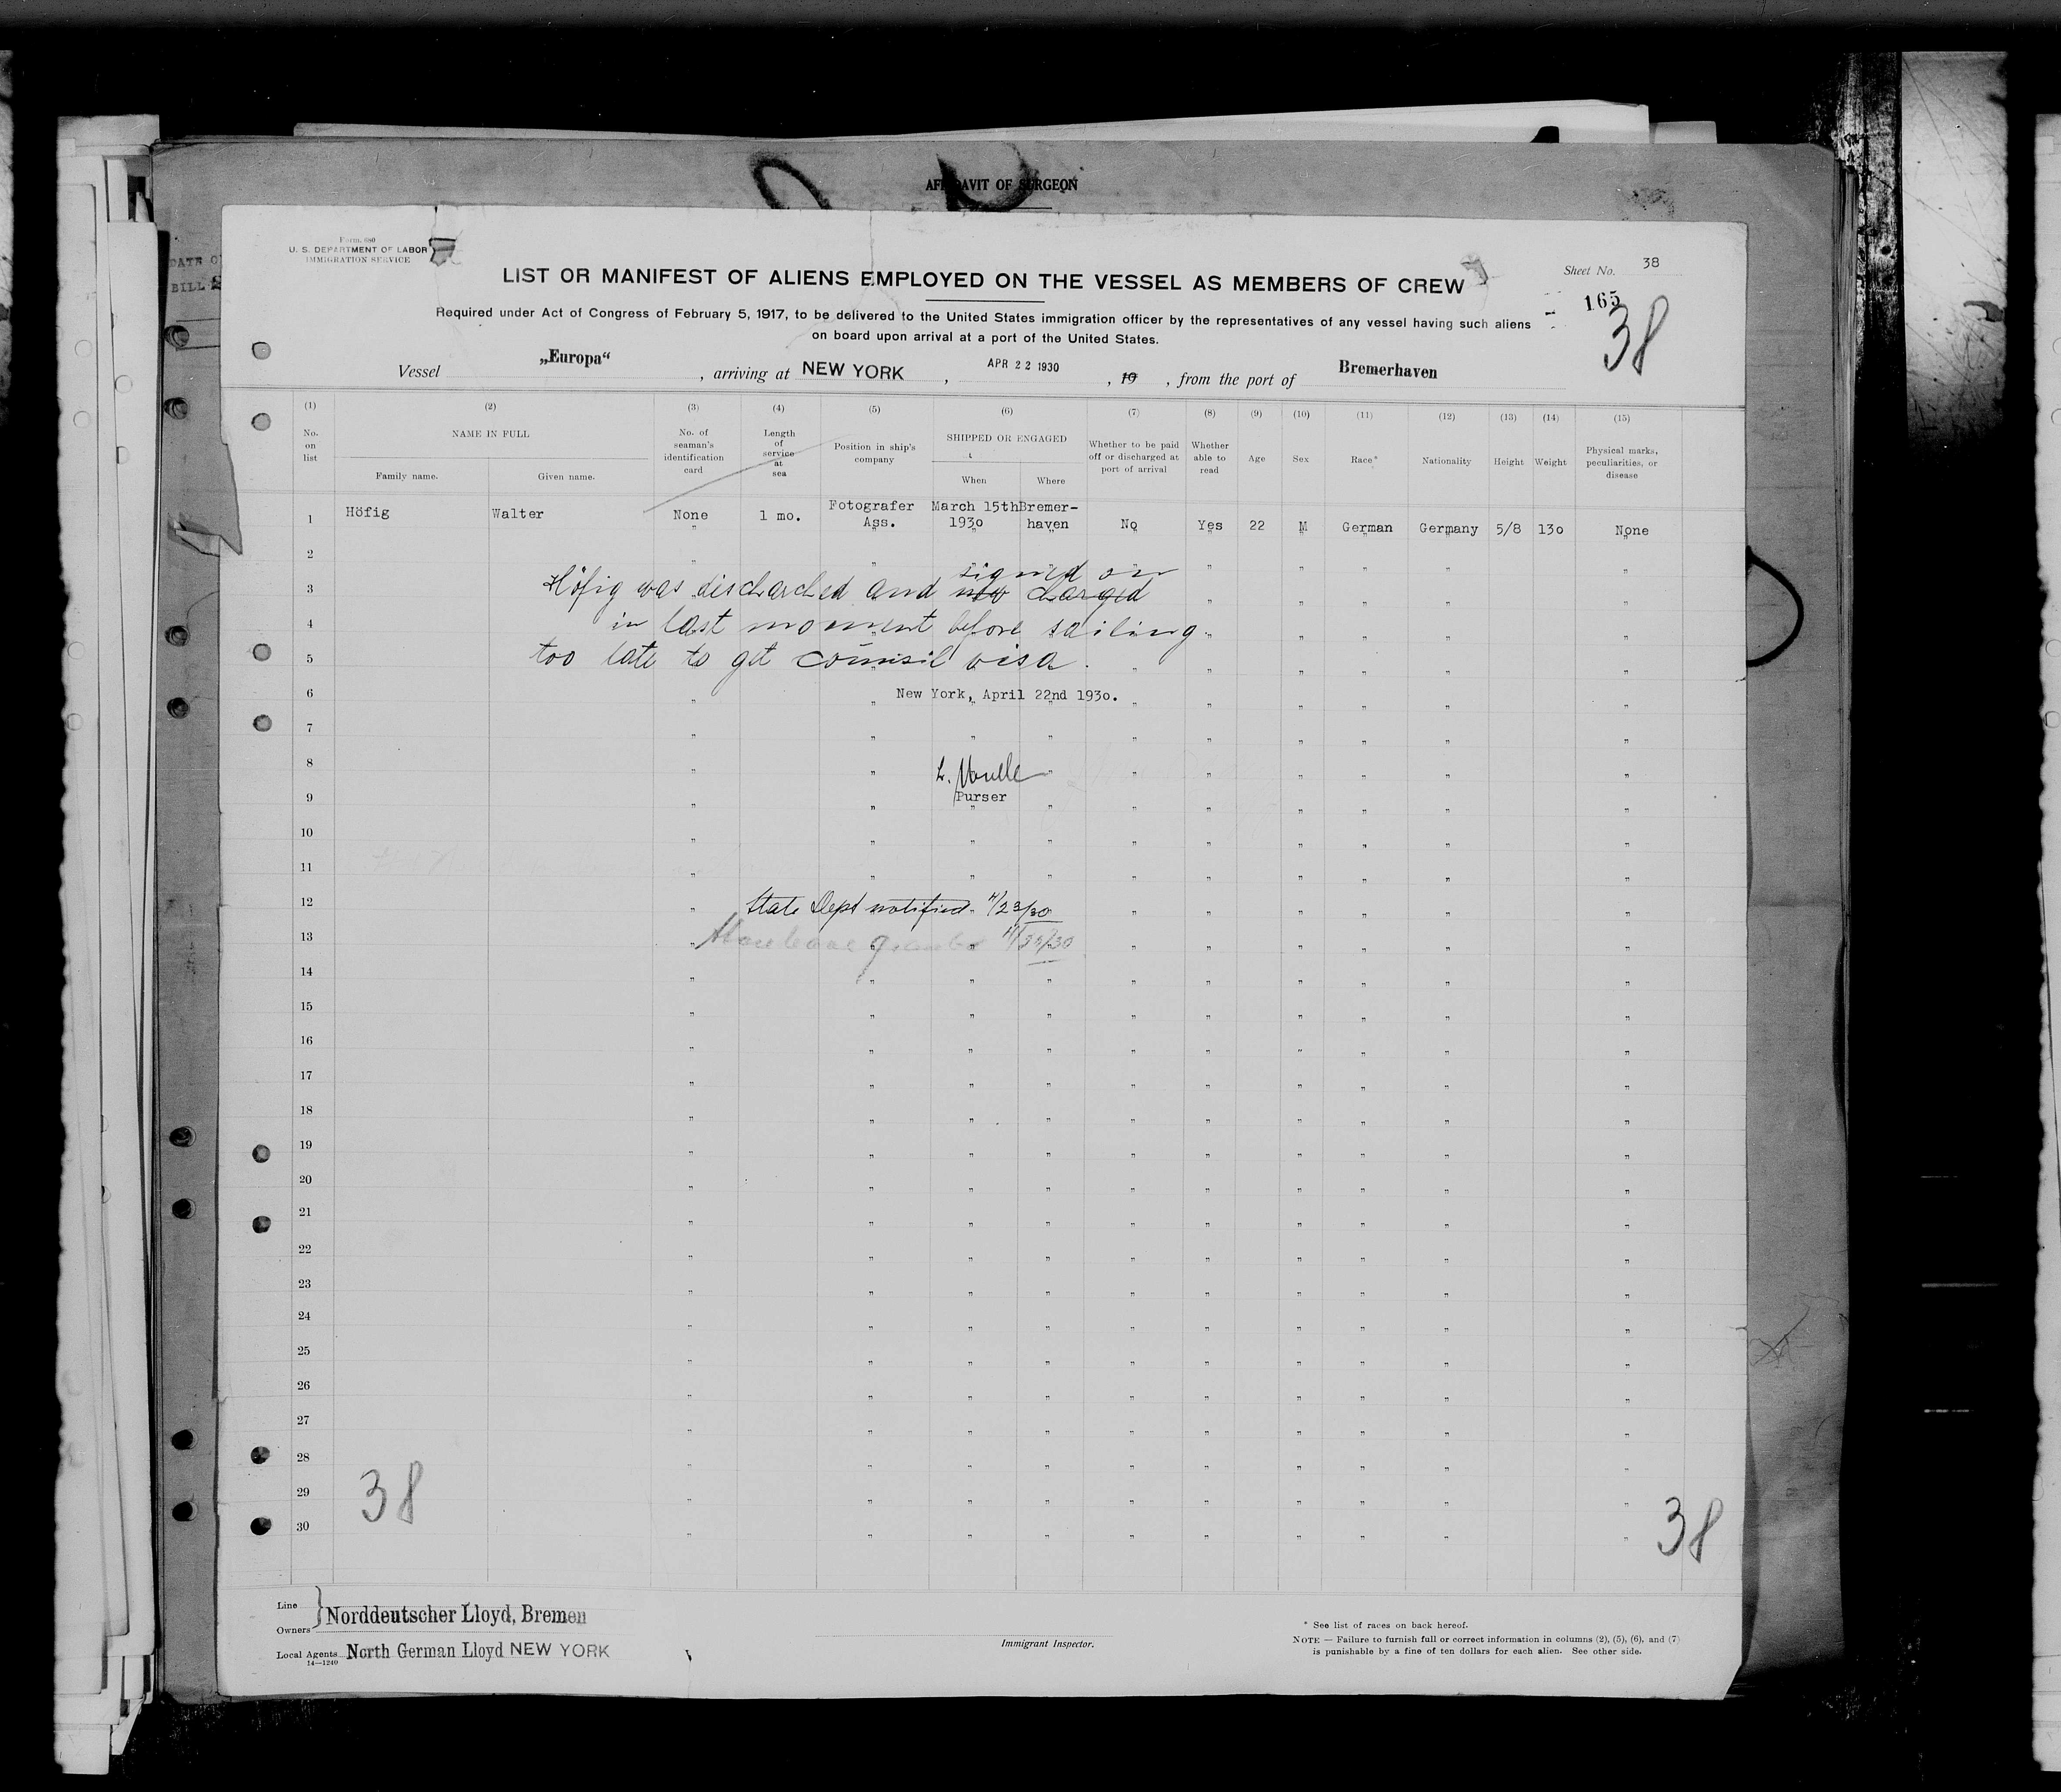 AFFIDAVIT OF SURGEON
Form 680
U. S. DEPARTMENT OF LABOR
IMMIGRATION SERVICE
DATE O
BILL
LIST OR MANIFEST OF ALIENS EMPLOYED ON THE VESSEL AS MEMBERS OF CREW
Sheet No. 38
165
38
Required under Act of Congress of February 5, 1917, to be delivered to the United States immigration officer by the representatives of any vessel having such aliens
on board upon arrival at a port of the United States.
Vessel „Europa“, arriving at NEW YORK, APR 22 1930, 19 , from the port of Bremerhaven
(1) (2) (3) (4) (5) (6) (7) (8) (9) (10) (11) (12) (13) (14) (15)
No. on list
NAME IN FULL
Family name. Given name.
No. of seaman's identification card
Length of service at sea
Position in ship's company
SHIPPED OR ENGAGED
When Where
Whether to be paid off or discharged at port of arrival
Whether able to read
Age
Sex
Race*
Nationality
Height
Weight
Physical marks, peculiarities, or disease
1 Höfig Walter None 1 mo. Fotografer Ass. March 15th 1930 Bremer-haven No Yes 22 M German Germany 5/8 130 None
2
signed on
3 Höfig was discharched and charged
4 in last moment before sailing
5 too late to get counsil visa.
6 New York, April 22nd 1930.
7
8
9 Purser
10
11
12 State Dept notified. 4/23/30
13
14
15
16
17
18
19
20
21
22
23
24
25
26
27
28
29
30
38
38
Line
Owners Norddeutscher Lloyd, Bremen
Local Agents North German Lloyd NEW YORK
14—1240
Immigrant Inspector.
* See list of races on back hereof.
NOTE — Failure to furnish full or correct information in columns (2), (5), (6), and (7)
is punishable by a fine of ten dollars for each alien. See other side.